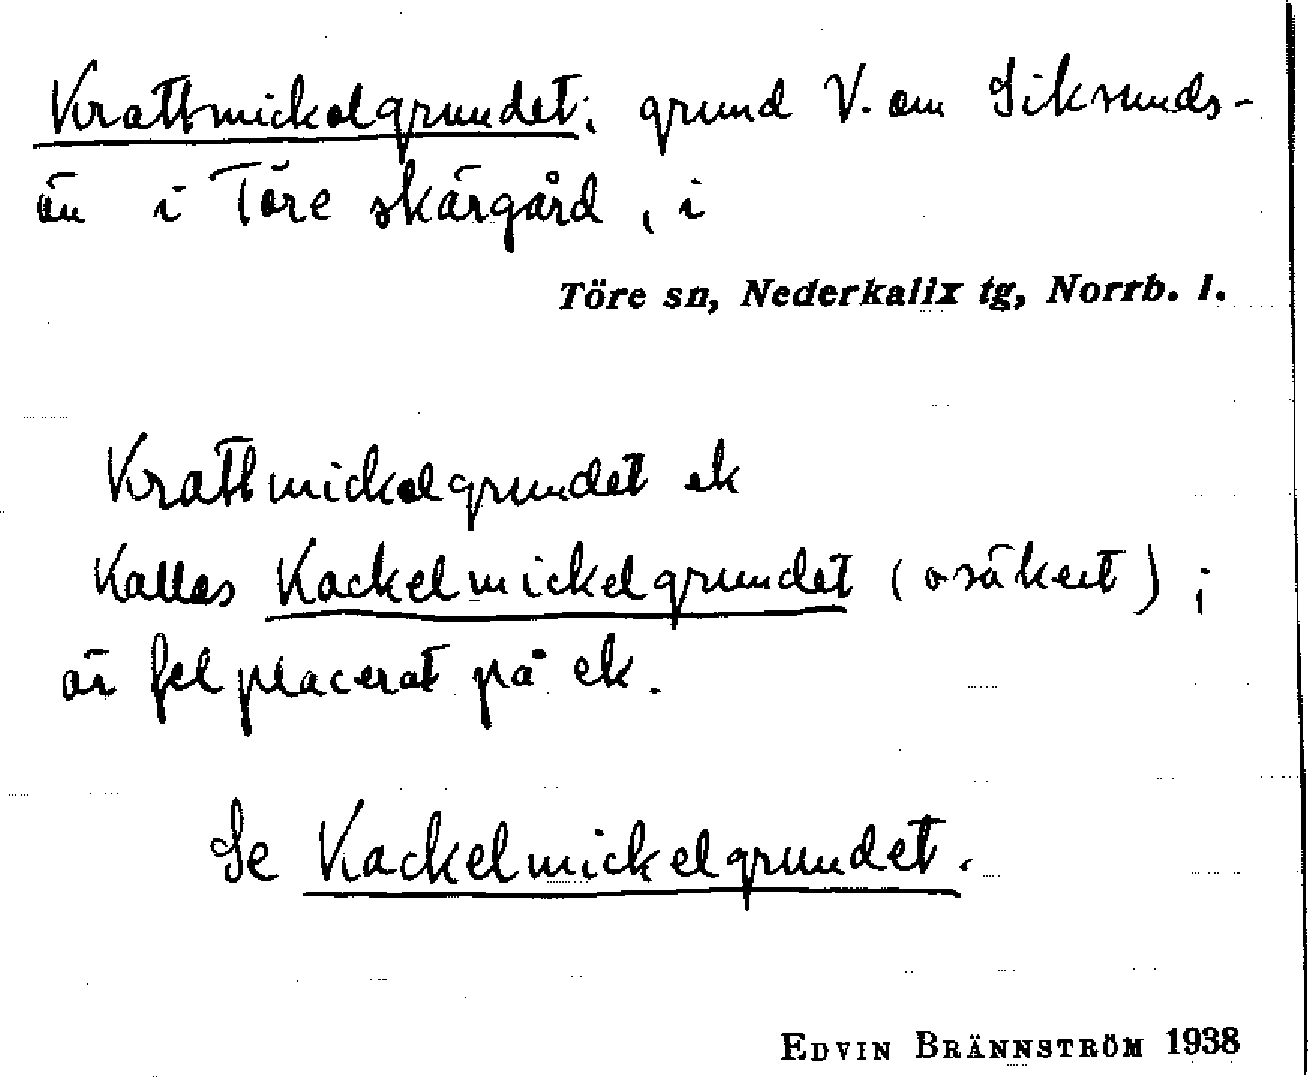 Krattmickelgrundet; grund V. om Siksunds-
ön i Töre skärgård, i
Töre sn, Nederkalix tg, Norrb. l.
Krattmickelgrundet ek
Kallas Kackelmickelgrundet (osäkert);
är felplacerat på ek.
Se Kackelmickelgrundet.
EDVIN BRÄNNSTRÖM 1938